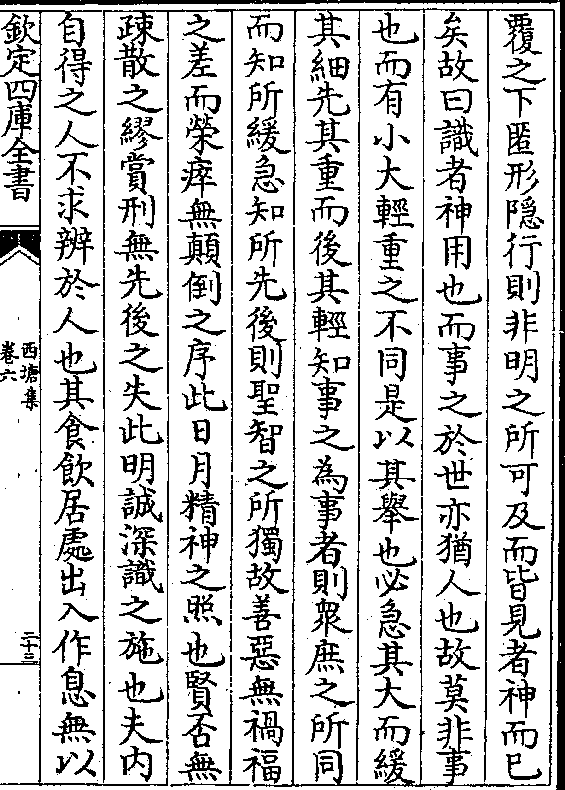 覆之下匿形隱行則非明之所可及而皆見者神而已
矣故曰識者神用也而事之於世亦猶人也故莫非事
也而有小大輕重之不同是以其舉也必急其大而緩
其細先其重而後其輕知事之為事者則衆庶之所同
而知所緩急知所先後則聖智之所獨故善惡無禍福
之差而榮瘁無顛倒之序此日月精神之照也賢否無
疎散之繆賞刑無先後之失此明誠深識之施也夫内
自得之人不求辨於人也其食飲居處出入作息無以
欽定四庫全書
西塘集
卷六
二十三